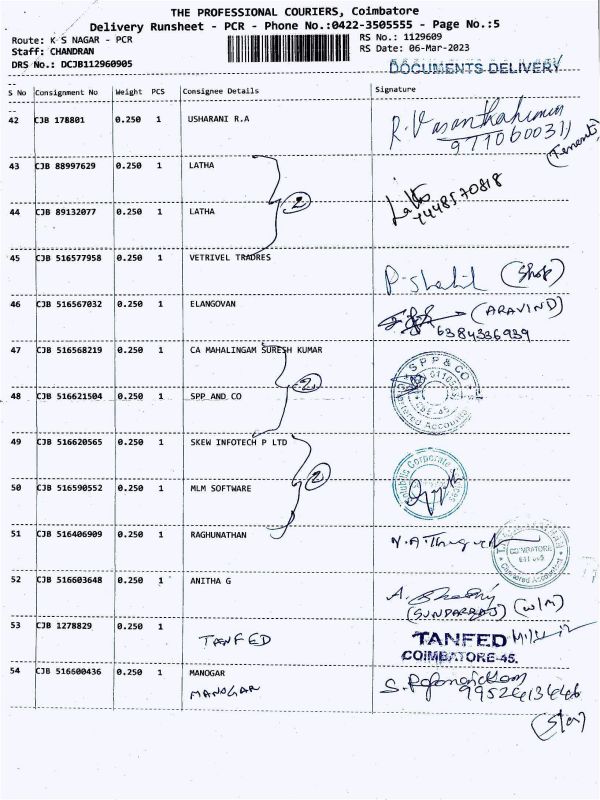 THE PROFESSIONAL COURIERS, Coimbatore
Delivery Runsheet - PCR - Phone No.:0422-3505555 - Page No.:5
Route: K S NAGAR - PCR RS No.: 1129609
Staff: CHANDRAN RS Date: 06-Mar-2023
DRS No.: DCJB112960905
DOCUMENTS DELIVERY
S No Consignment No Weight PCS Consignee Details Signature
42 CJB 178801 0.250 1 USHARANI R.A
R. Vasanthakumar
9710600311
(Tenent)
43 CJB 88997629 0.250 1 LATHA
2
Latha
9448570818
44 CJB 89132077 0.250 1 LATHA
45 CJB 516577958 0.250 1 VETRIVEL TRADRES
(Shop)
46 CJB 516567032 0.250 1 ELANGOVAN
(ARAVIND)
6384336939
47 CJB 516568219 0.250 1 CA MAHALINGAM SURESH KUMAR
2
SPP & CO
CBE-45
Chartered Accountants
48 CJB 516621504 0.250 1 SPP AND CO
49 CJB 516620565 0.250 1 SKEW INFOTECH P LTD
2
Corporate
50 CJB 516590552 0.250 1 MLM SOFTWARE
51 CJB 516406909 0.250 1 RAGHUNATHAN
COIMBATORE
Chartered Accountant
52 CJB 516603648 0.250 1 ANITHA G
(W/M)
53 CJB 1278829 0.250 1
TANFED
TANFED
COIMBATORE-45.
54 CJB 516600436 0.250 1 MANOGAR
MANOGAR